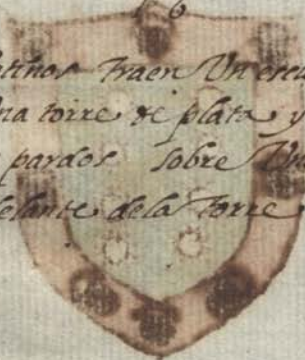 6
traen Un escu
na torre de plata y
pardos sobre Un
delante de la torre